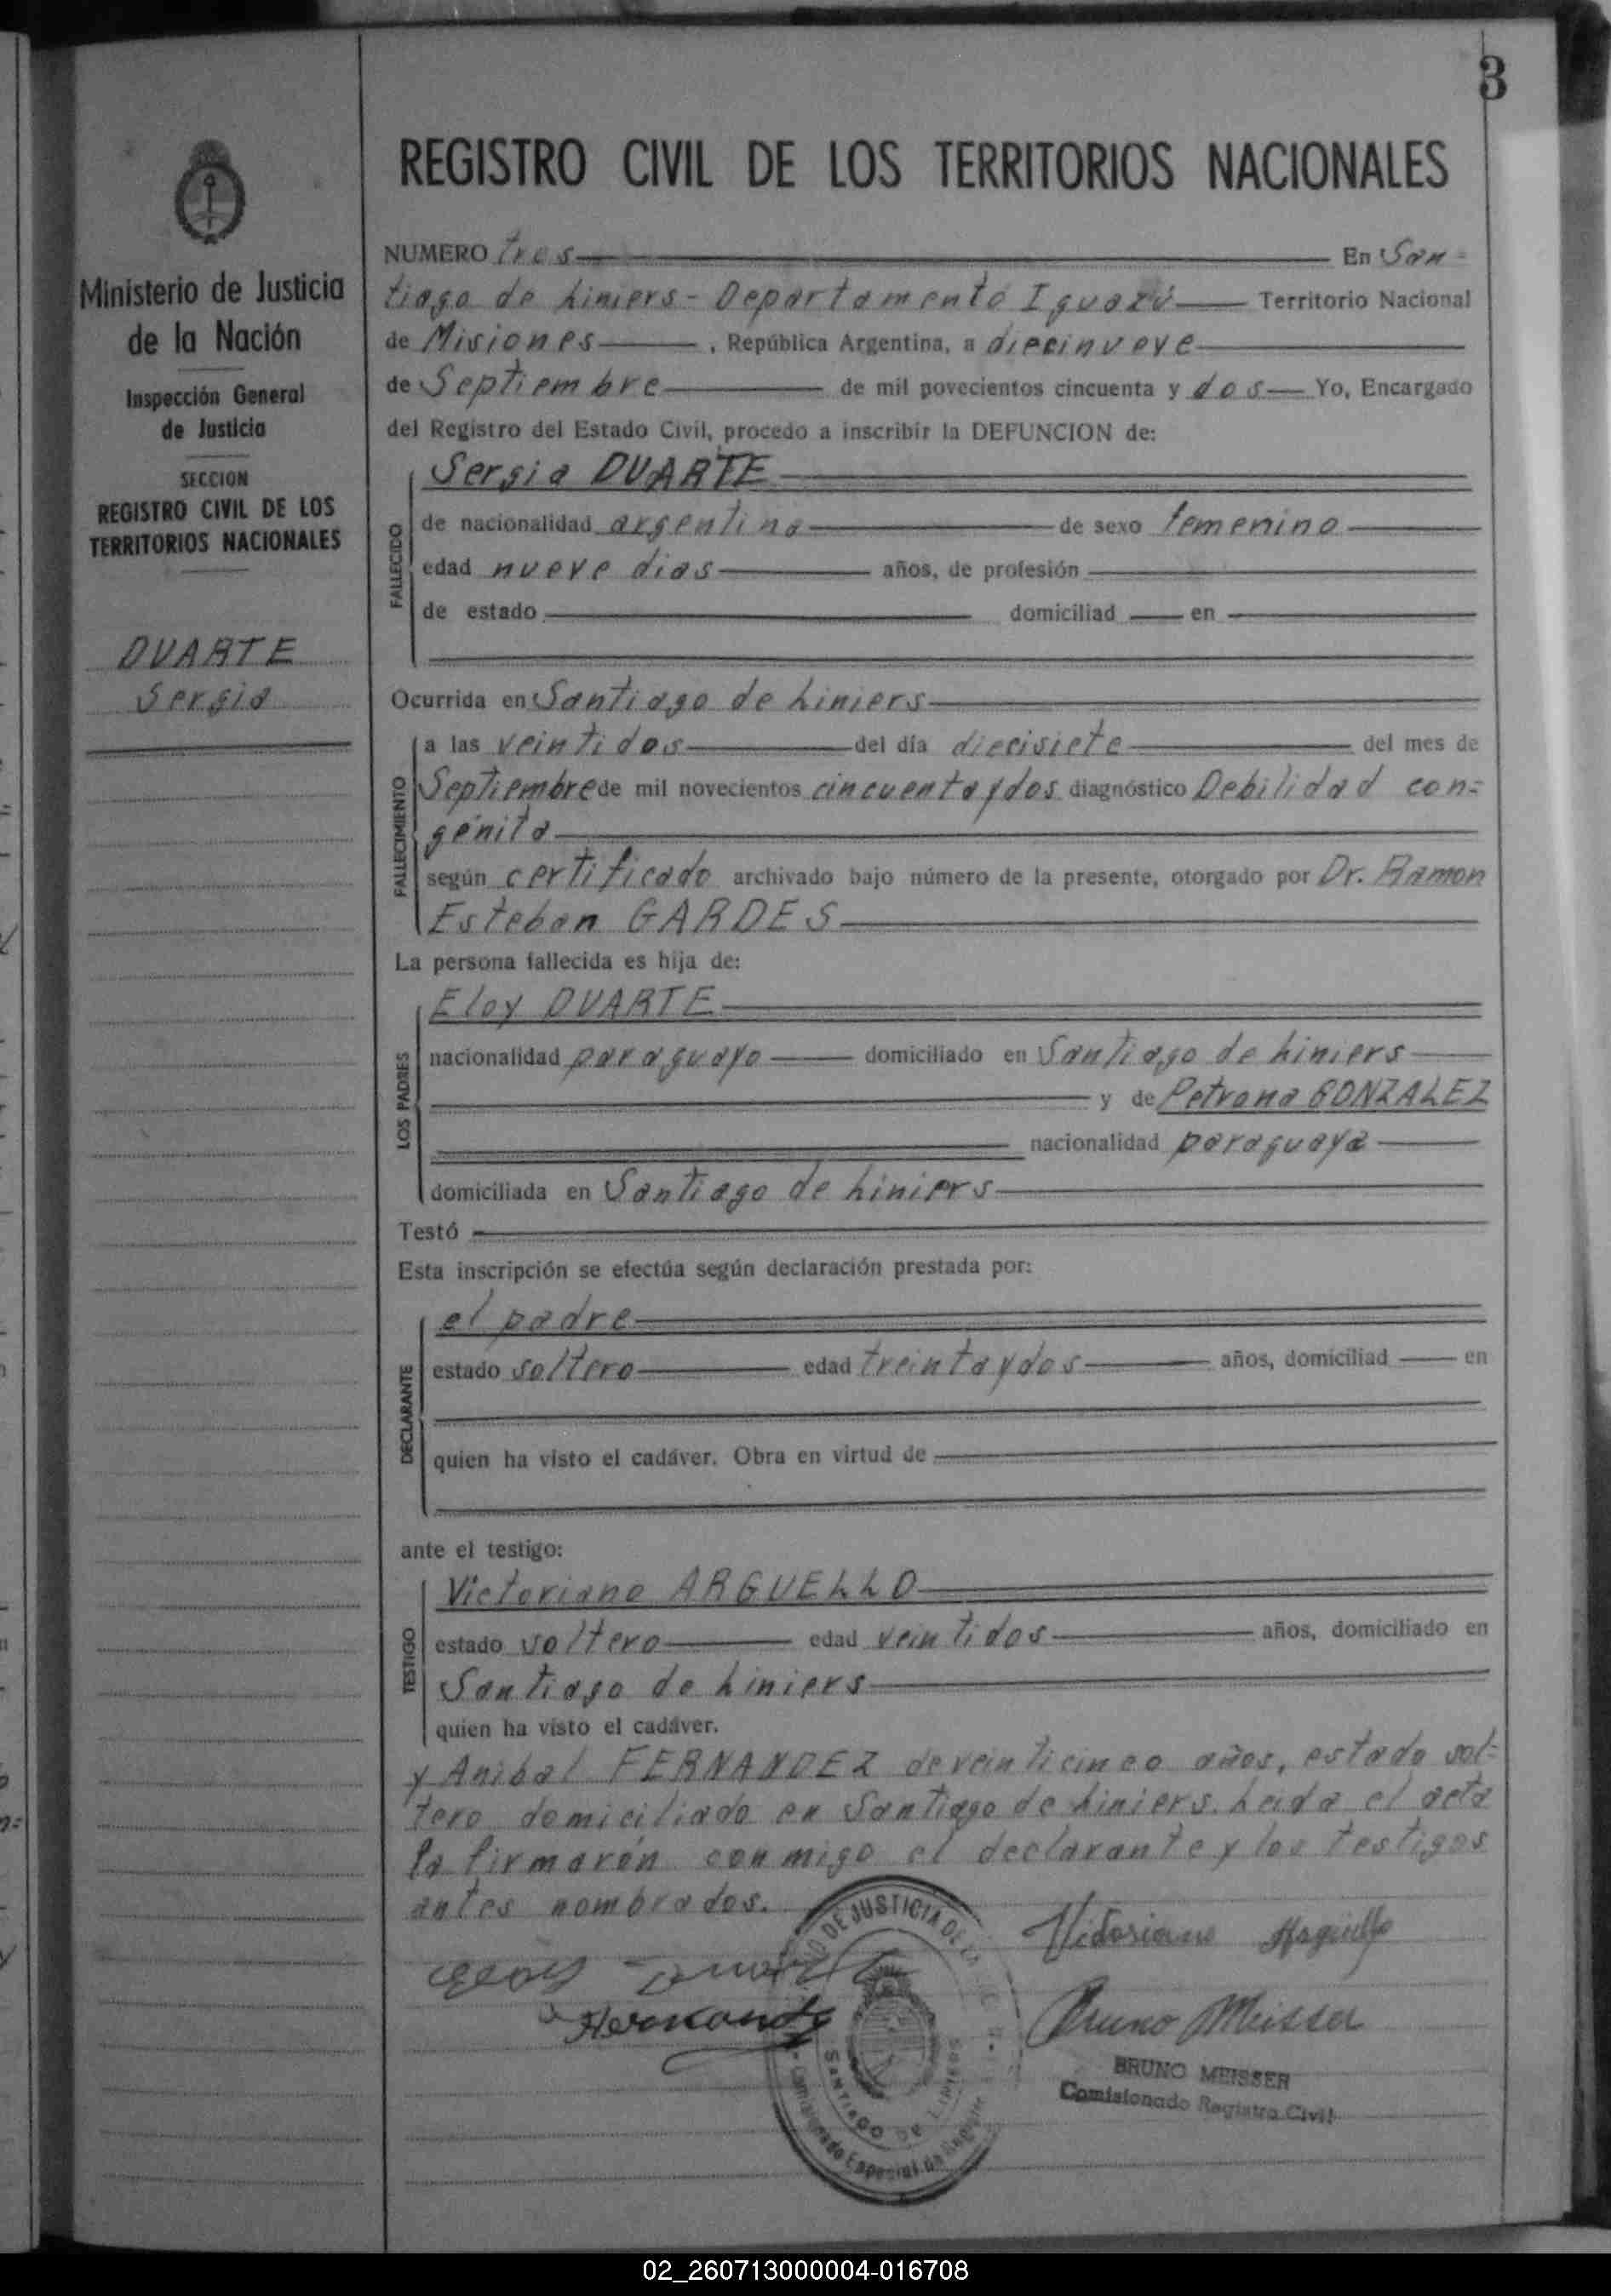 3
Ministerio de Justicia
de la Nación
Inspección General
de Justicia
SECCION
REGISTRO CIVIL DE LOS
TERRITORIOS NACIONALES
DUARTE
Sergia
REGISTRO CIVIL DE LOS TERRITORIOS NACIONALES
NUMERO tres En San=
tiago de Liniers - Departamento Iguazú Territorio Nacional
de Misiones, República Argentina, a diecinueve
de Septiembre de mil novecientos cincuenta y dos Yo, Encargado
del Registro del Estado Civil, procedo a inscribir la DEFUNCION de:
FALLECIDO
Sergia DUARTE
de nacionalidad argentina de sexo femenino
edad nueve dias años, de profesión
de estado domiciliad en
Ocurrida en Santiago de Liniers
FALLECIMIENTO
a las veintidos del día diecisiete del mes de
Septiembre de mil novecientos cincuenta y dos diagnóstico Debilidad con=
génita
según certificado archivado bajo número de la presente, otorgado por Dr. Ramon
Esteban GARDES
La persona fallecida es hija de:
LOS PADRES
Eloy DUARTE
nacionalidad paraguayo domiciliado en Santiago de Liniers
y de Petrona GONZALEZ
nacionalidad paraguaya
domiciliada en Santiago de Liniers
Testó
Esta inscripción se efectúa según declaración prestada por:
DECLARANTE
el padre
estado soltero edad treinta y dos años, domiciliad en
quien ha visto el cadáver. Obra en virtud de
ante el testigo:
TESTIGO
Victoriano ARGUELLO
estado soltero edad veintidos años, domiciliado en
Santiago de Liniers
quien ha visto el cadáver.
y Anibal FERNANDEZ de veinticinco años, estado sol=
tero domiciliado en Santiago de Liniers. Leida el acta
la firmarón conmigo el declarante y los testigos
antes nombrados.
Victoriano Arguello
Eloy Duarte
Bruno Meisser
BRUNO MEISSER
Comisionado Registro Civil
DE JUSTICIA DE LA
SANTIAGO DE LINIERS
02_260713000004-016708